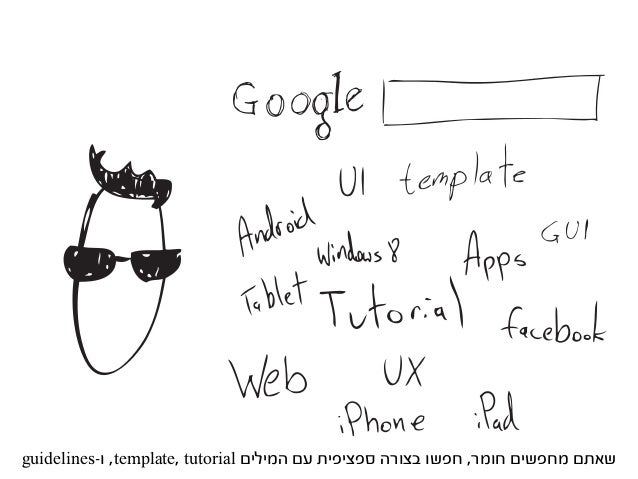 Google
UI template
Android
Windows 8
Apps
GUI
Tablet
Tutorial
facebook
Web
UX
iPhone
iPad
שאתם מחפשים חומר, חפשו בצורה ספציפית עם המילים template, tutorial, ו-guidelines